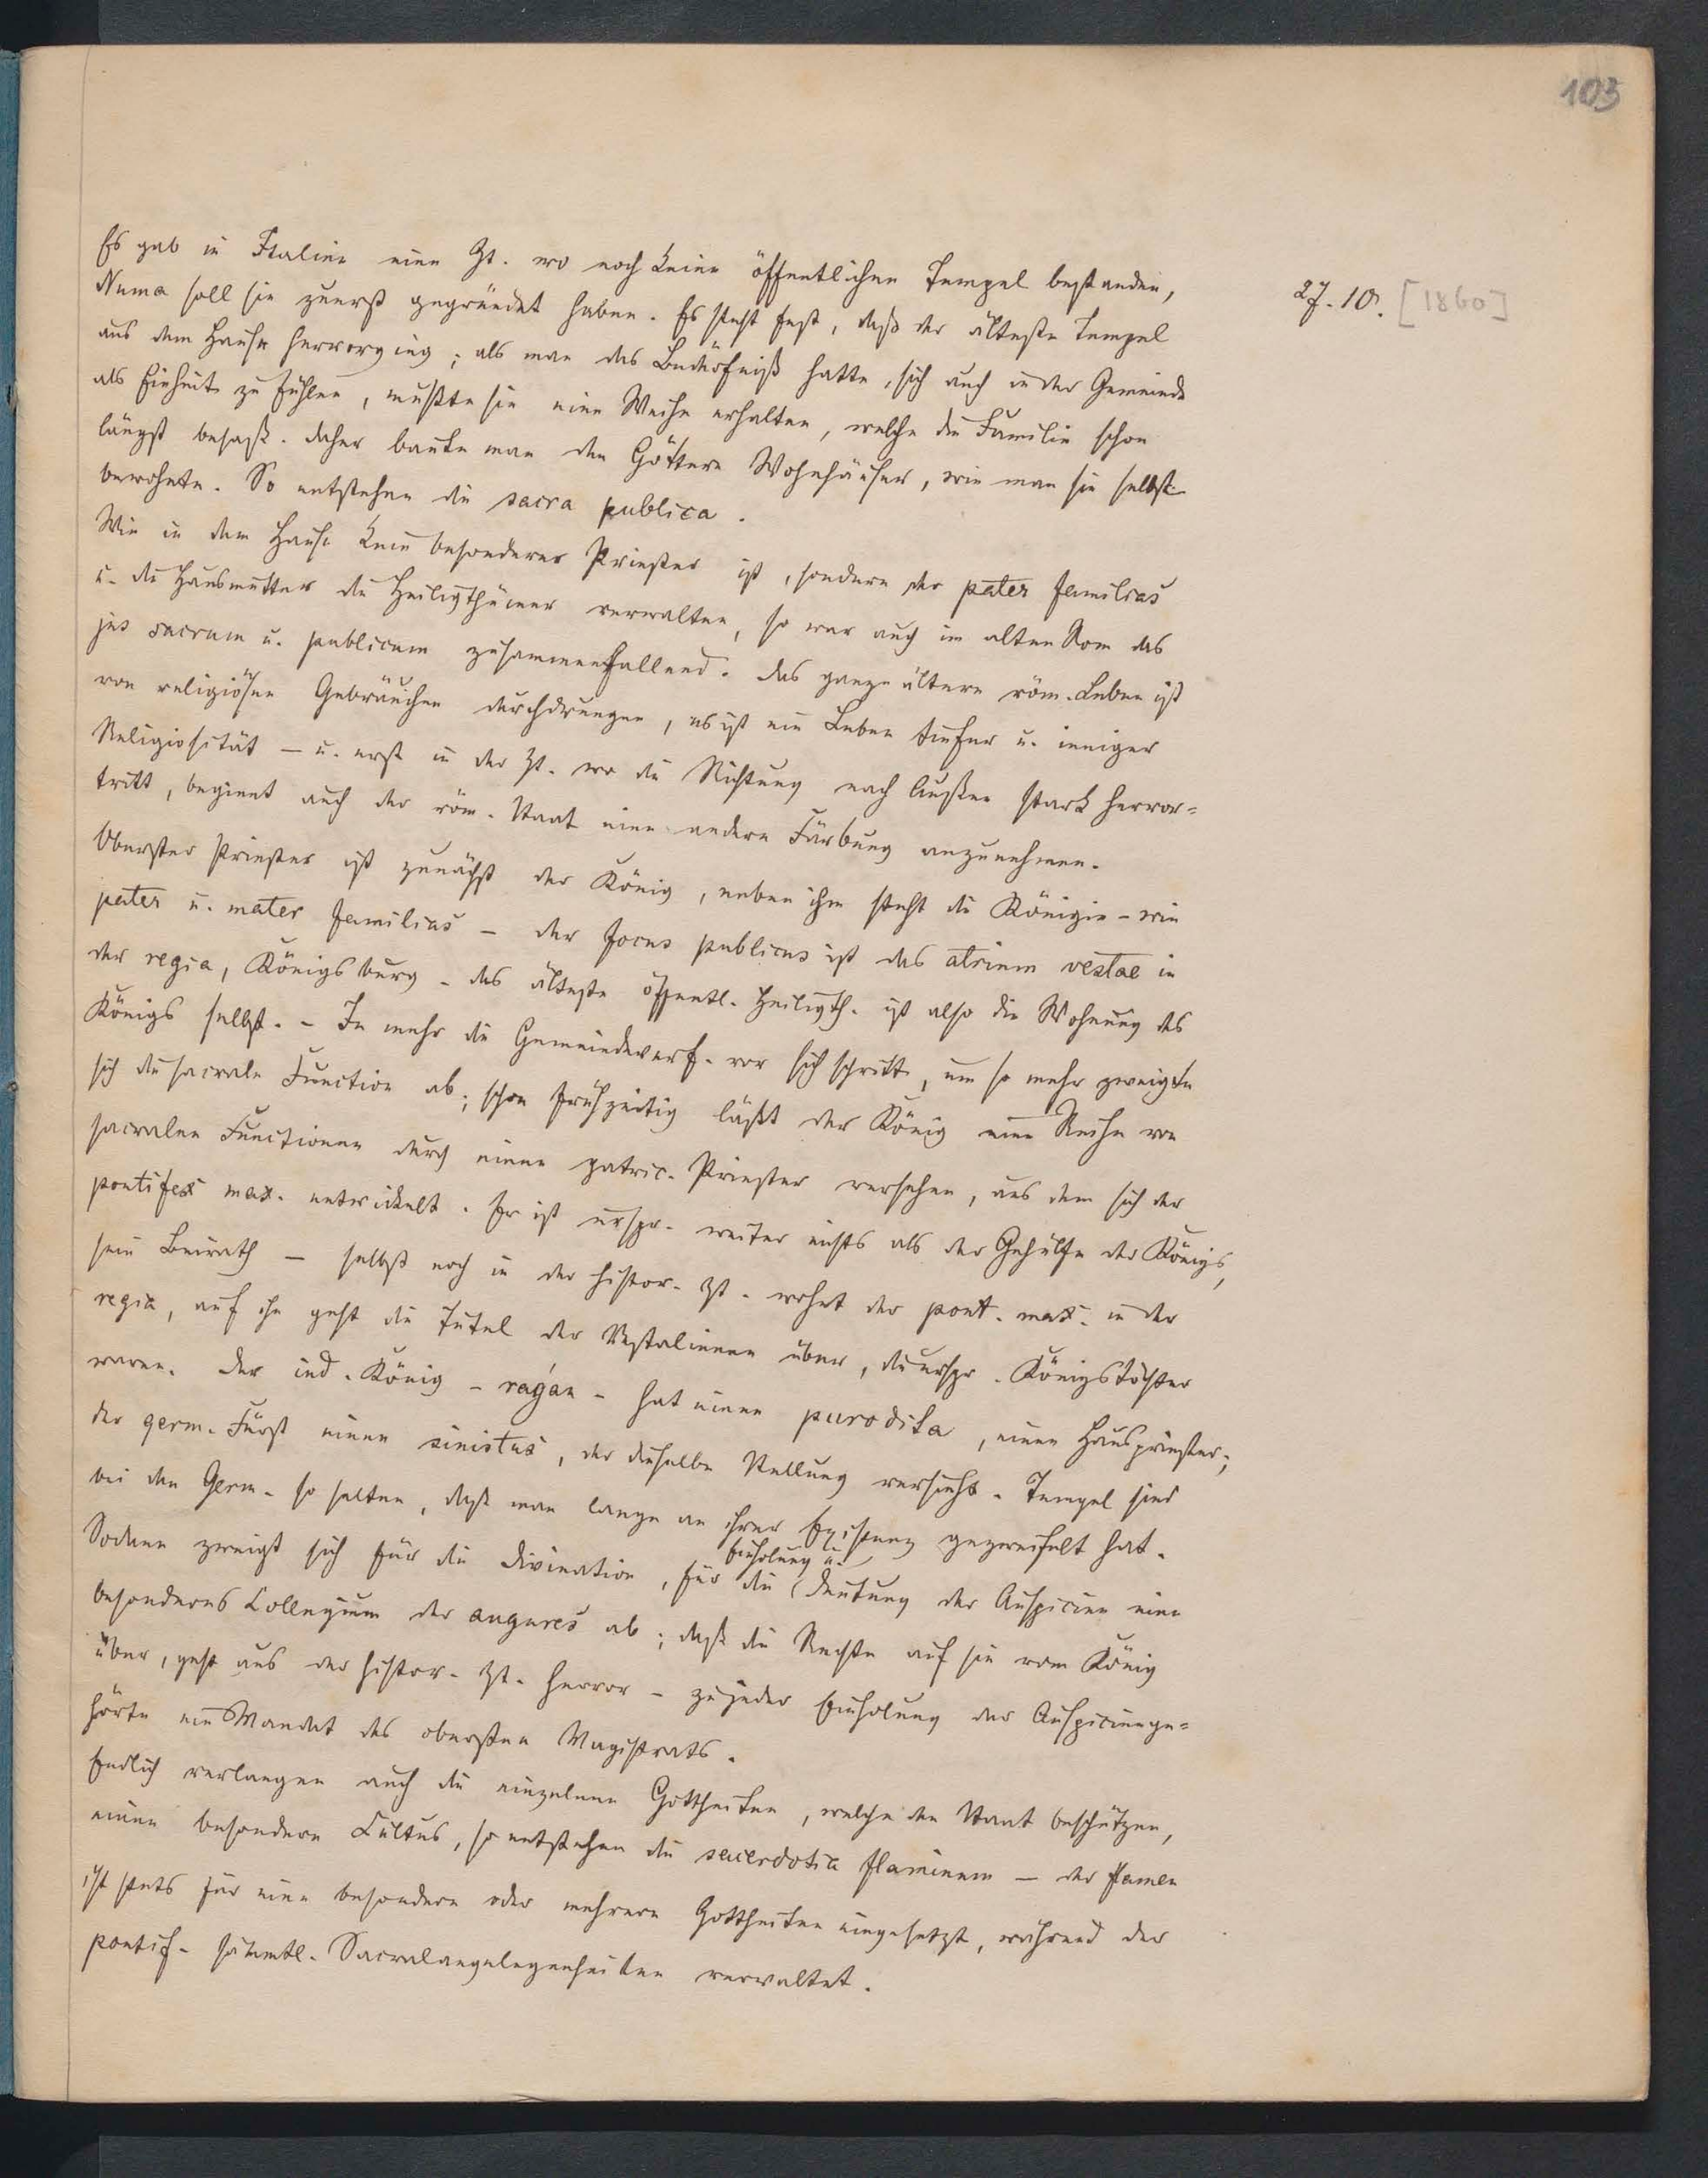 103
27. 10. [1860]
Es gab in Italien eine Zt. wo noch keine öffentlichen Tempel bestanden,
Numa soll sie zuerst gegründet haben. Es steht fest, daß der älteste Tempel
aus dem Hause hervorging; als man das Bedürfniß hatte, sich auch in der Gemeinde
als Einheit zu fühlen, mußte sie eine Weihe erhalten, welche die Familie schon
längst besaß. Daher baute man den Göttern Wohnhäuser, wie man sie selbst
bewohnte. So entstehen die sacra publica.
Wie in dem Hause kein besonderer Priester ist, sondern der pater familias
u. die Hausmutter die Heiligthümer verwalten, so war auch im alten Rom das
jus sacrum u. publicum zusammenfallend. Das ganze ältere röm. Leben ist
von religiösen Gebräuchen durchdrungen, es ist ein Leben tiefer u. inniger
Religiosität – u. erst in der Zt. wo die Richtung nach Außen stark hervor=
tritt, beginnt auch der röm. Staat eine andere Färbung anzunehmen.
Oberster Priester ist zunächst der König, neben ihm steht die Königin – wie
pater u. mater familias – der focus publicus ist das atrium vestae in
der regia, Königsburg – das älteste öffentl. Heiligth. ist also die Wohnung des
Königs selbst. – Je mehr die Gemeindeverf. vor sich schritt, um so mehr zweigte
sich die sacrale Function ab; schon frühzeitig läßt der König eine Reihe von
sacralen Functionen durch einen patric. Priester versehen, aus dem sich der
pontifex max. entwickelt. Er ist urspr. weiter nichts als der Gehülfe der Königs,
sein Beirath – selbst noch in der histor. Zt. wohnt der pont. max. in der
regia, auf ihn geht die Tutel der Vestalinnen über, die urspr. Königstöchter
waren. Der ind. König – ragán – hat einen purodita, einen Hauspriester;
der germ. Fürst einen sinistus, der dieselbe Stellung versieht. Tempel sind
bei den Germ. so selten, daß man lange an ihrer Existenz gezweifelt hat.
Sodann zweigt sich für die Divination, für die (Einholung u. Deutung der Auspicien eine
besonderes Collegium der augures ab; daß die Rechte auf sie vom König
über, geht aus der histor. Zt. hervor – zu jeder Einholung der Auspicien ge=
hörte ein Mandat des obersten Magistrats.
Endlich verlangen auch die einzelnen Gottheiten, welche den Staat beschützen,
einen besondern Cultus, so entstehen die sacerdotia flaminum – der flamen
ist stets für eine besondere oder mehrere Gottheiten eingesetzt, während der
pontif. sämmtl. Sacralangelegenheiten verwaltet.